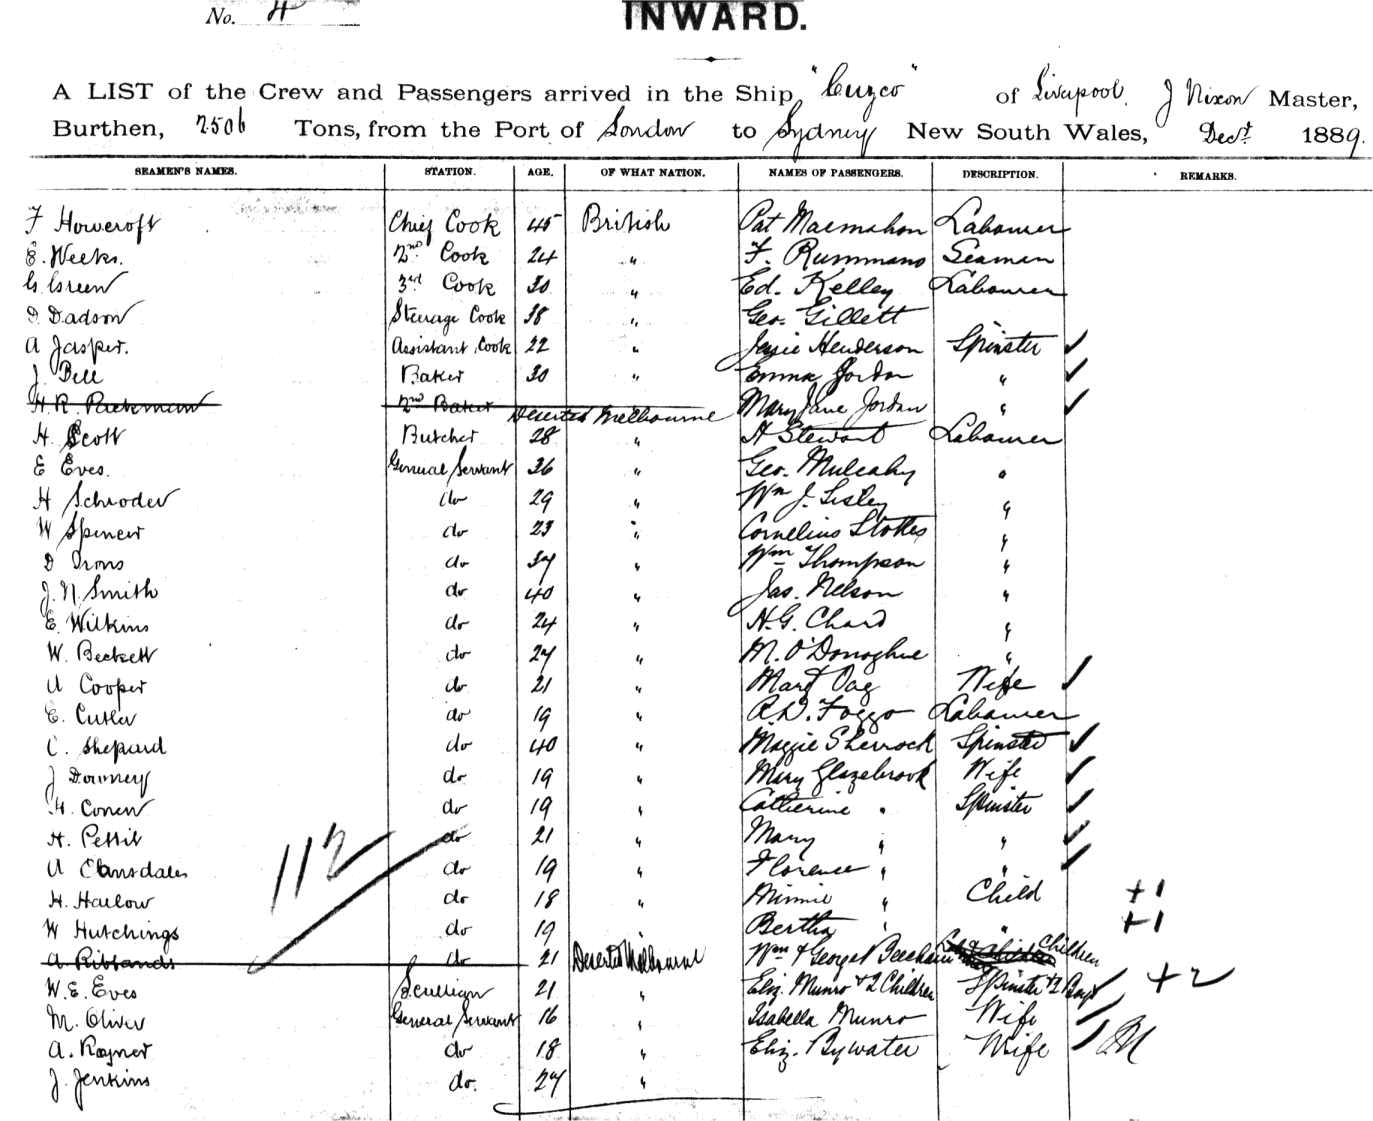 No. 4
INWARD.
A LIST of the Crew and Passengers arrived in the Ship "Cuzco" of Liverpool, J Nixon Master,
Burthen, 2506 Tons, from the Port of London to Sydney New South Wales, Decr 1889.
SEAMEN'S NAMES. STATION. AGE. OF WHAT NATION. NAMES OF PASSENGERS. DESCRIPTION. REMARKS.
F Howcroft Chief Cook 45 British Pat Macmahon Labourer
E. Weeks. 2nd Cook 24 " F. Rummans Seaman
G. Green 3rd Cook 30 " Ed. Kelley Labourer
D. Dadson Steerage Cook 38 " Geo. Gillett
A Jasper. Assistant Cook 22 " Jessie Henderson Spinster ✓
J. Bell Baker 30 " Emma Jordan " ✓
H. R. Packman 2nd Baker Deserted Melbourne Mary Jane Jordan " ✓
H. Scott Butcher 28 " A Stewart Labourer
E Eves. General Servant 36 " Geo. Mulcahy "
H Schroder do 29 " Wm J. Lisley "
W Spencer do 23 " Cornelius Stokes "
D Irons do 37 " Wm Thompson "
J. N. Smith do 40 " Jas. Nelson "
E. Wilkins do 24 " H. G. Chard "
W. Beckett do 27 " M. O'Donoghue "
A Cooper do 21 " Margt Oag Wife ✓
E. Cutler do 19 " R. D. Foggo Labourer
C. Shepard do 40 " Maggie Sherrock Spinster ✓
J Downey do 19 " Mary Glazebrook Wife ✓
H. Conen do 19 " Catherine " Spinster ✓
H. Pettit do 21 " Mary " " ✓
A Clansdales do 19 " Florence " " ✓
112
H. Harlow do 18 " Minnie " Child +1
W Hutchings do 19 Bertha " " +1
A Ribbands do 21 Deserted Melbourne Wm & George Beecham Children
W. E. Eves Scullion 21 " Eliz. Munro & 2 Children Spinster & 2 Boys ✓ +2
M. Oliver General Servant 16 " Isabella Munro Wife ✓
A. Rayner do 18 " Eliz. Bywater Wife ✓ M
J. Jenkins do. 27 "